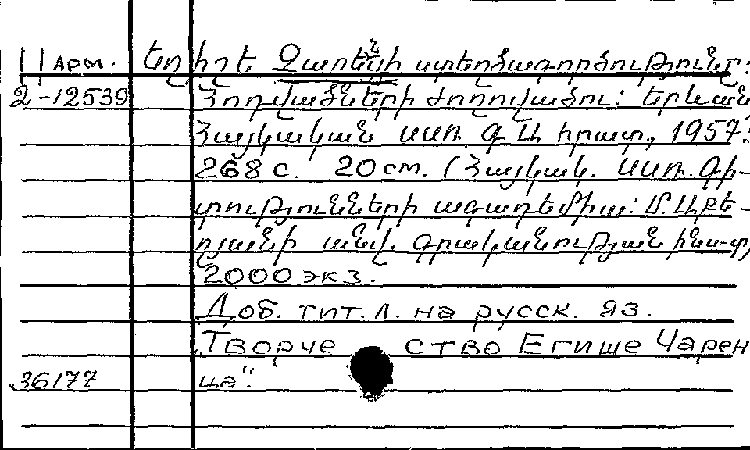 Арм. Եղիշե Չարենցի ստեղծագործությունը:
2-12539 Հոդվածների ժողովածու: Երևան
Հայկական ՍՍՌ ԳԱ հրատ., 1957:
268 с. 20 см. (Հայկակ. ՍՍՌ. Գի-
տությունների ակադեմիա: Մ. Աբե-
ղյանի անվ. գրականության ինստ.)
2000 экз.
Доб. тит. л. на русск. яз.
„Творче ство Егише Чарен
36177 ца".